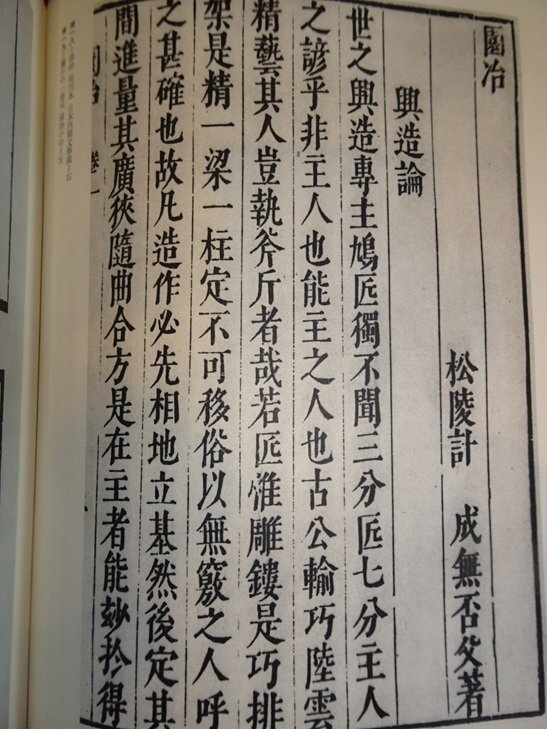 園冶
松陵計 成無否父著
興造論
世之興造專主鳩匠獨不聞三分匠七分主人
之諺乎非主人也能主之人也古公輸巧陸雲
精藝其人豈執斧斤者哉若匠惟雕鏤是巧排
架是精一梁一柱定不可移俗以無竅之人呼
之甚確也故凡造作必先相地立基然後定其
間進量其廣狹隨曲合方是在主者能玅於得
園冶 卷一